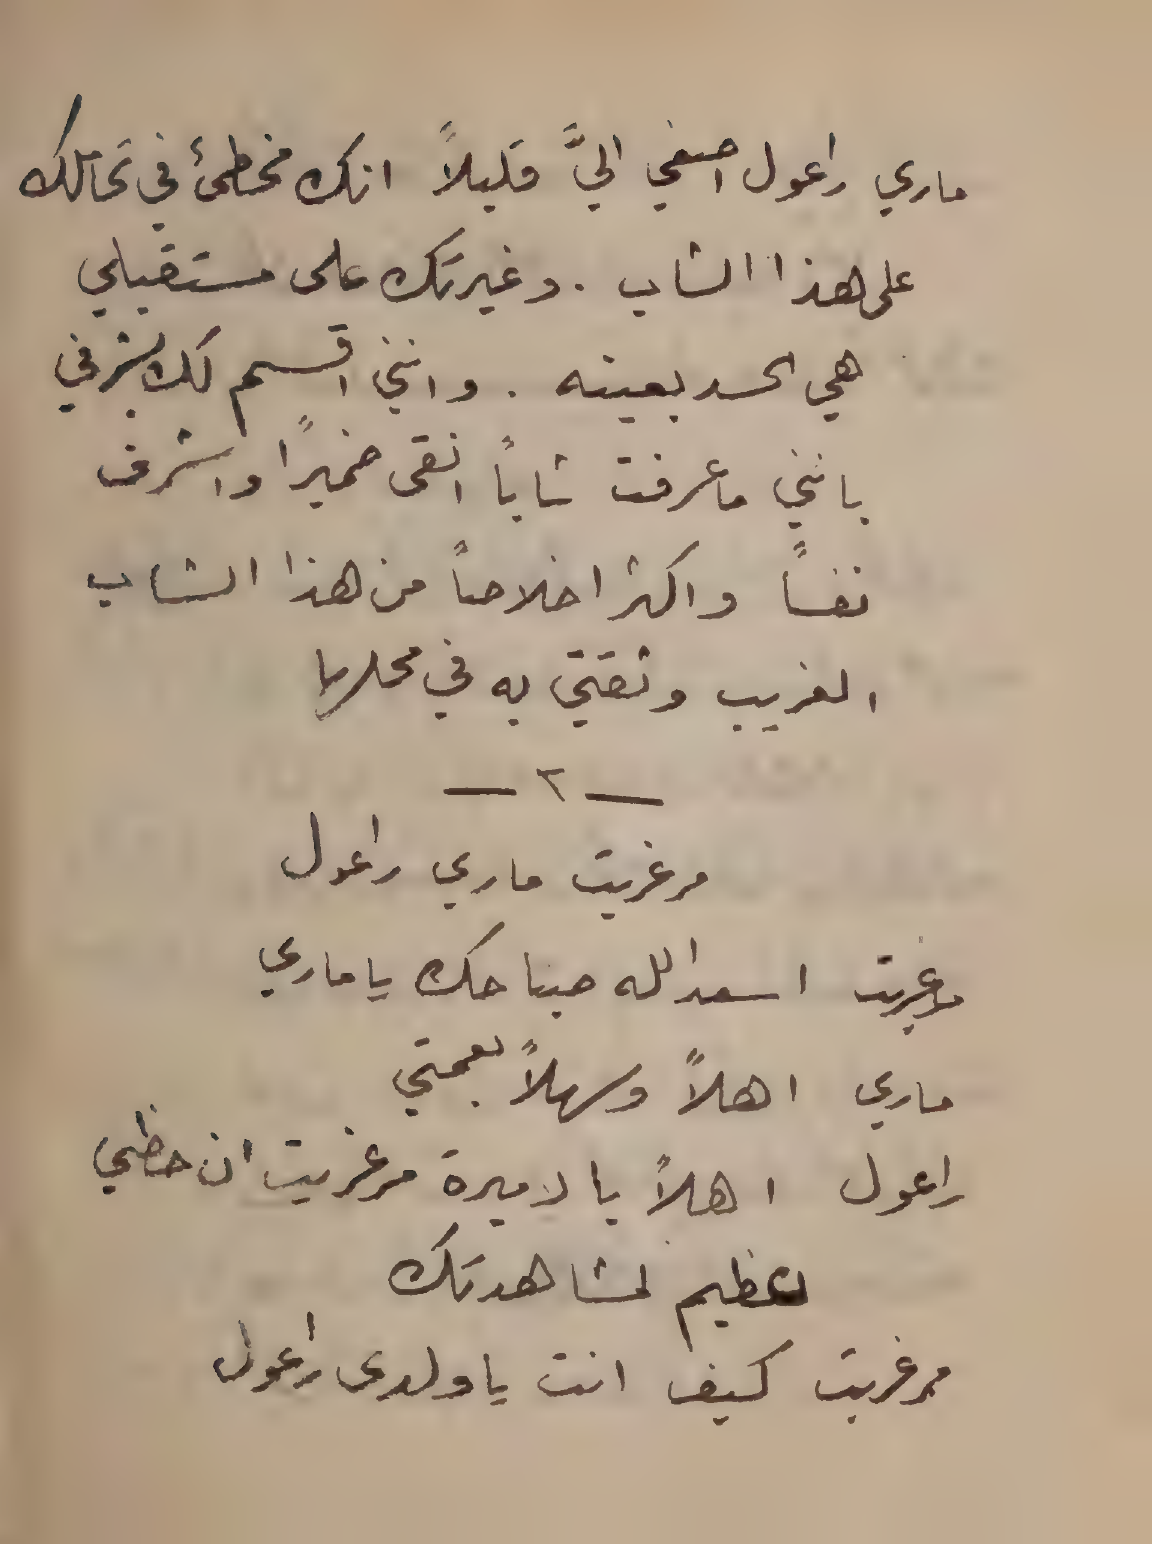 ماري راعول اصغي اليَّ قليلاً انك مخطئ في تحاملك
على هذا الشاب . وغيرتك على مستقبلي
هي الحسد بعينه . وانني اقسم لك بشرفي
بانني ما عرفت شاباً انقى ضميرًا واشرف
نفساً واكثر اخلاصاً من هذا الشاب
الغريب وثقتي به في محلها
— ٢ —
مرغريت ماري راعول
مرغريت اسعد الله صباحك يا ماري
ماري اهلاً وسهلاً بعمتي
راعول اهلاً بالاميرة مرغريت ان حظي
لعظيم لمشاهدتك
مرغريت كيف انت يا ولدى راعول